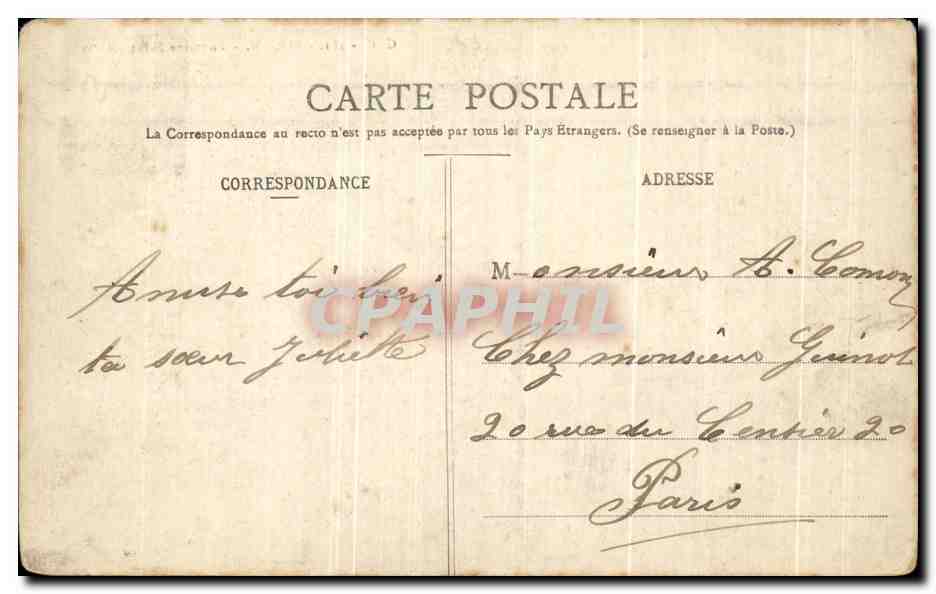 CARTE POSTALE
La Correspondance au recto n'est pas acceptée par tous les Pays Étrangers. (Se renseigner à la Poste.)
CORRESPONDANCE
Amuse toi bien
ta sœur Juliette
CPAPHIL
ADRESSE
Monsieur A.
Chez monsieur Guinot
20 rue du Censier 20
Paris